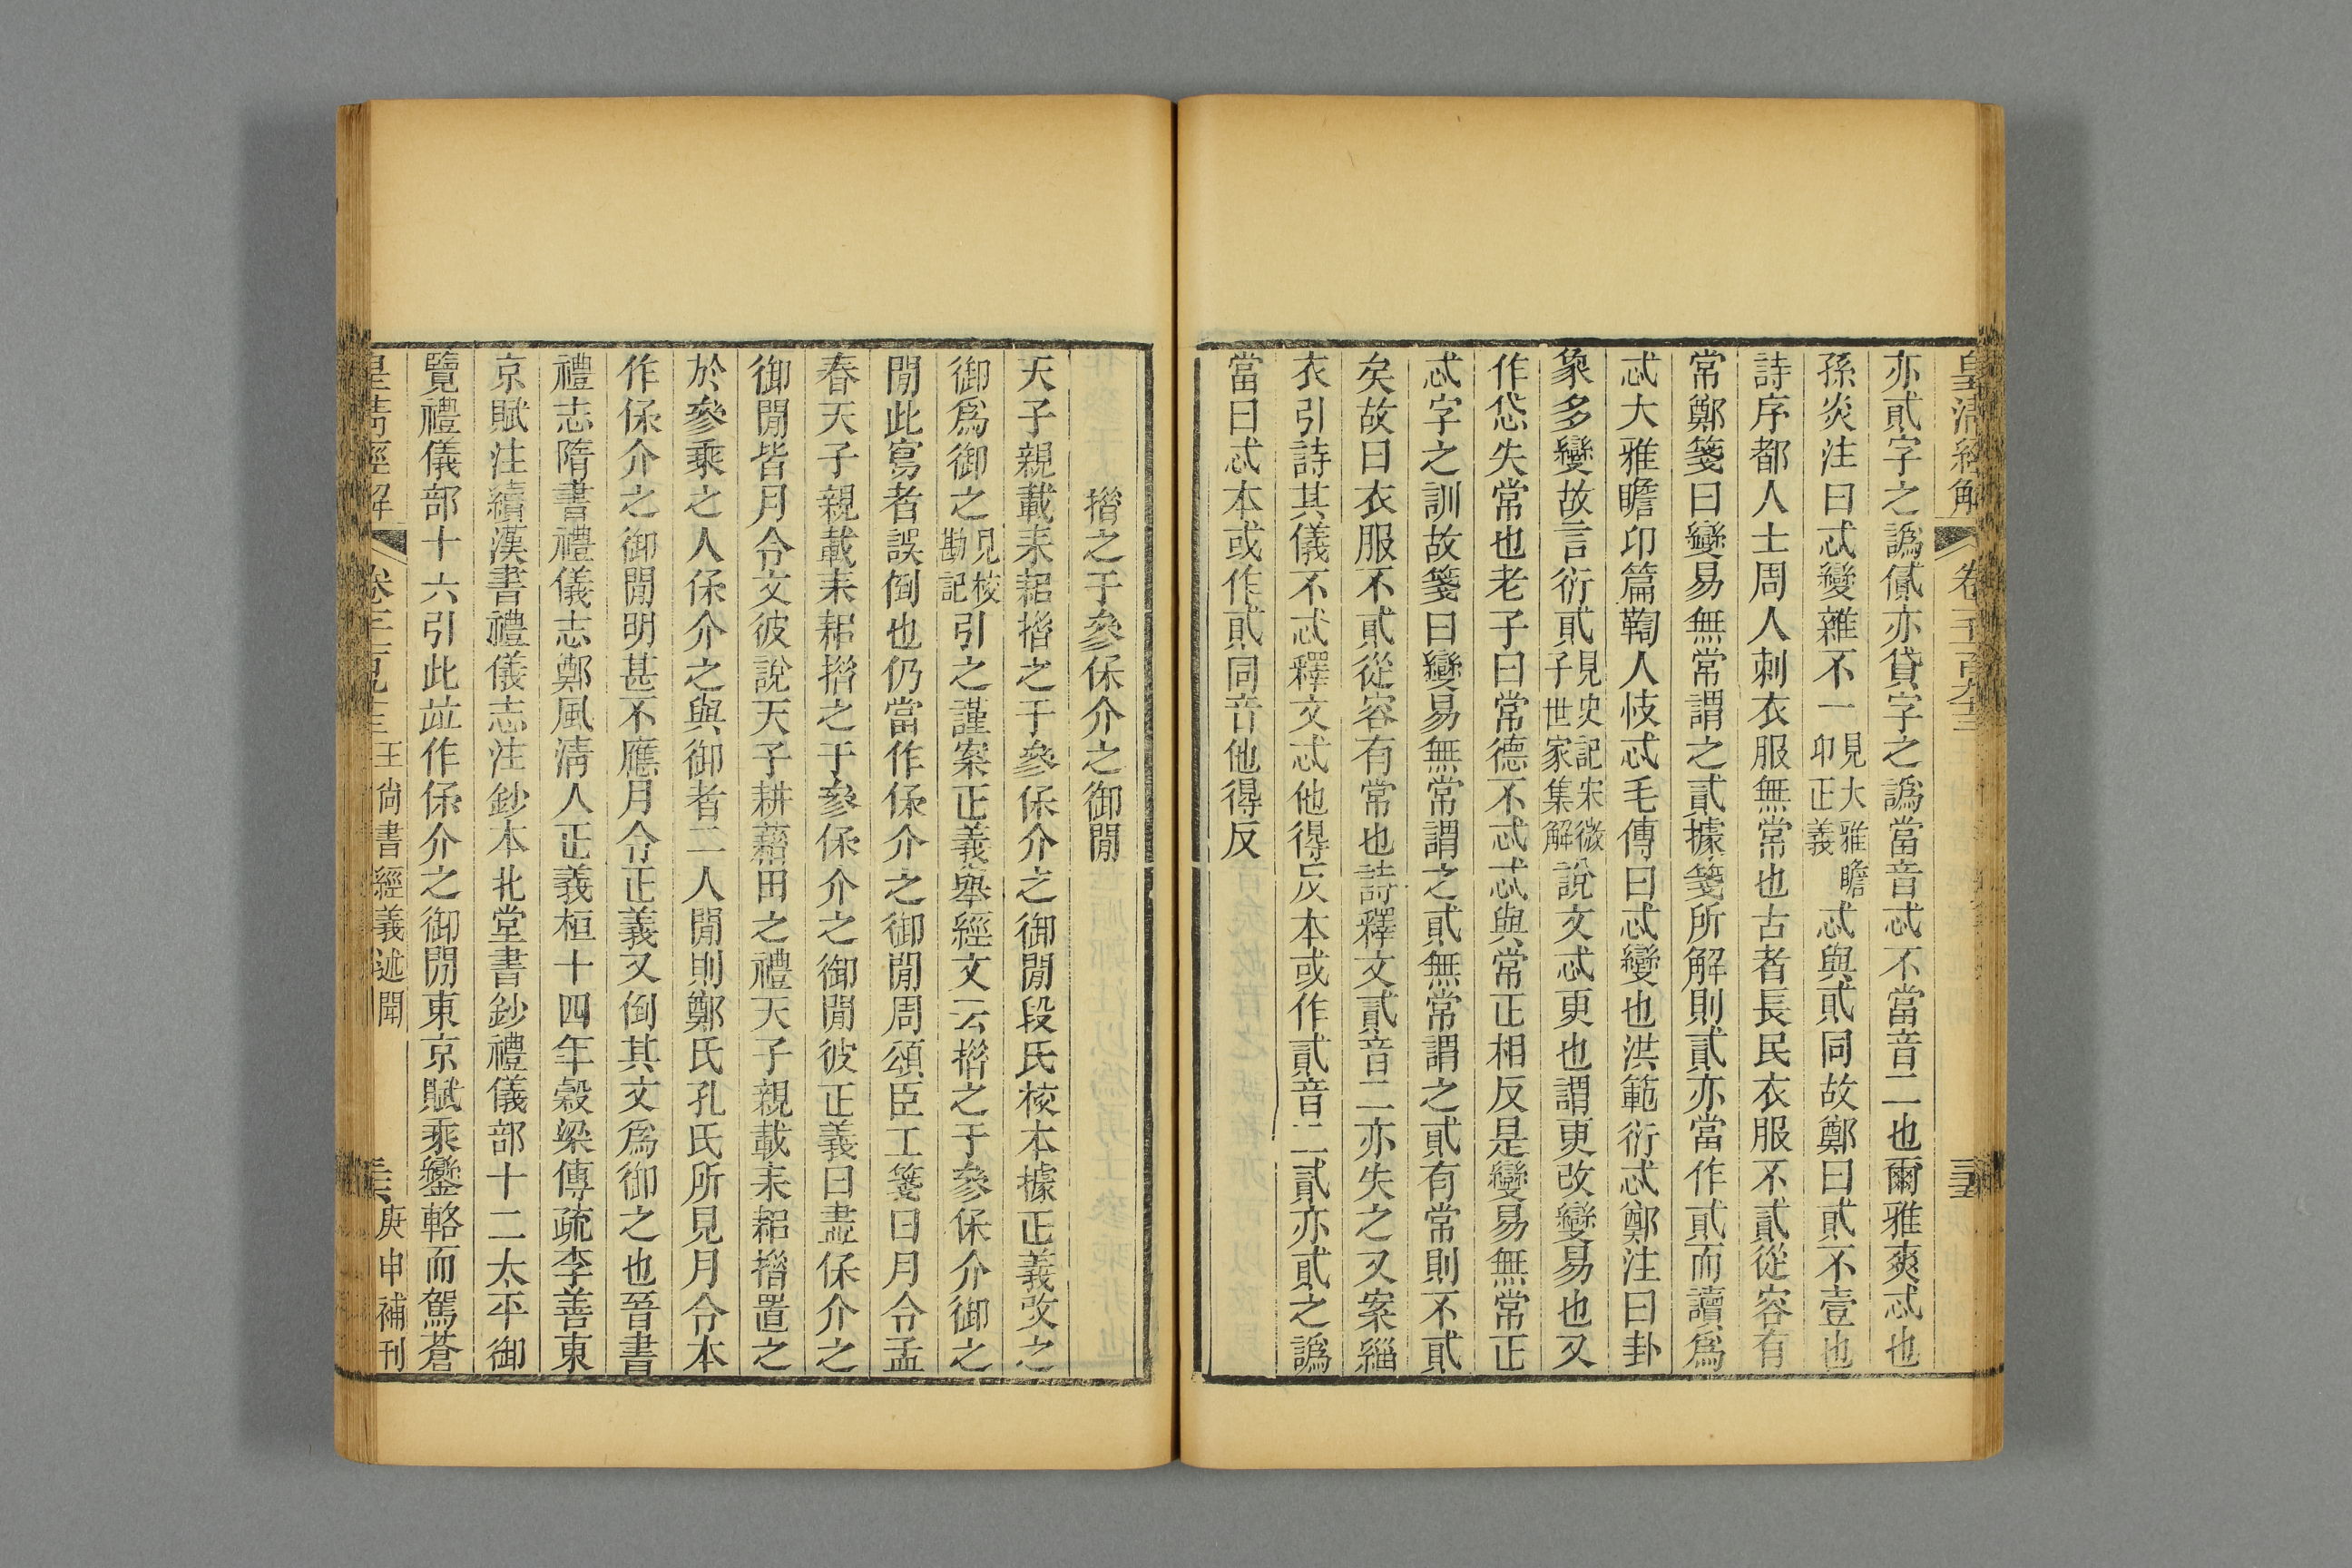 皇清經解
卷一千一百九十三
三五
亦貳字之譌儥亦貸字之譌當音忒不當音二也爾雅爽忒也
孫炎注曰忒變雜不一見大雅瞻卬正義忒與貳同故鄭曰貳不壹也
詩序都人士周人刺衣服無常也古者長民衣服不貳從容有
常鄭箋曰變易無常謂之貳據箋所解則貳亦當作貳而讀爲
忒大雅瞻卬篇鞫人忮忒毛傳曰忒變也洪範衍忒鄭注曰卦
象多變故言衍貳見史記宋微子世家集解說文忒更也謂更改變易也又
作忒失常也老子曰常德不忒忒與常正相反是變易無常正
忒字之訓故箋曰變易無常謂之貳無常謂之貳有常則不貳
矣故曰衣服不貳從容有常也詩釋文貳音二亦失之又案緇
衣引詩其儀不忒釋文忒他得反本或作貳音二貳亦貳之譌
當曰忒本或作貳同音他得反
措之于參保介之御閒
天子親載耒耜措之于參保介之御閒段氏校本據正義改之
御爲御之見校勘記引之謹案正義舉經文云措之于參保介御之
閒此寫者誤倒也仍當作保介之御閒周頌臣工箋曰月令孟
春天子親載耒耜措之于參保介之御閒彼正義曰盡保介之
御閒皆月令文彼說天子耕藉田之禮天子親載耒耜措置之
於參乘之人保介之與御者二人閒則鄭氏孔氏所見月令本
作保介之御閒明甚不應月令正義又倒其文爲御之也晉書
禮志隋書禮儀志鄭風清人正義桓十四年穀梁傳疏李善東
京賦注續漢書禮儀志注鈔本北堂書鈔禮儀部十二太平御
覽禮儀部十六引此竝作保介之御閒東京賦乘鑾輅而駕蒼
皇清經解
卷一千一百九十三
王尚書經義述聞
庚申補刊